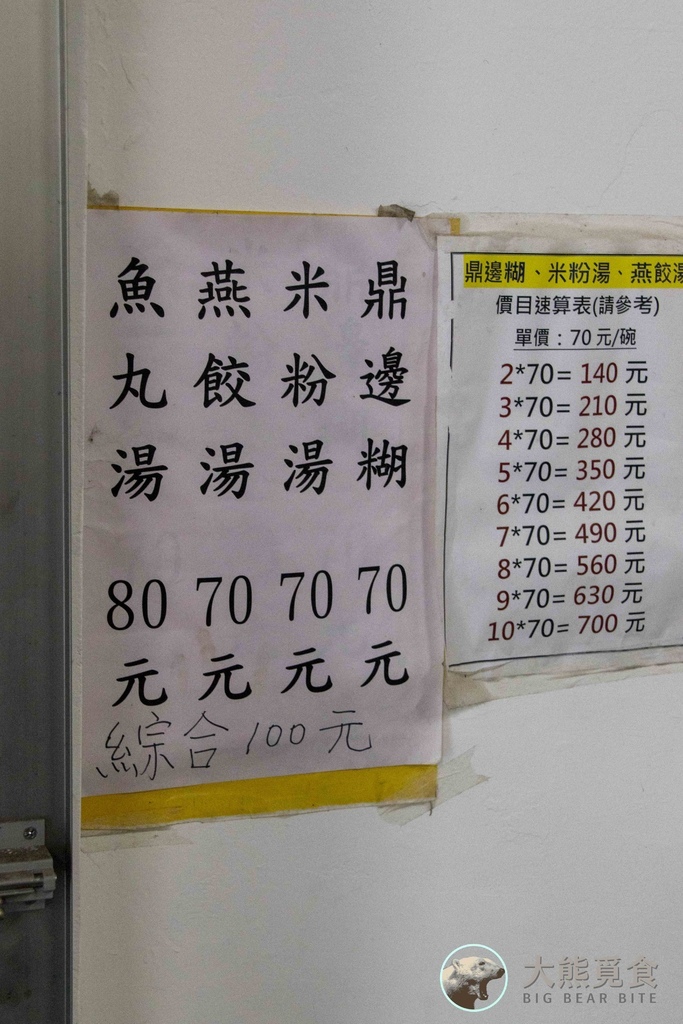 鼎邊糊 70元
米粉湯 70元
燕餃湯 70元
魚丸湯 80元
綜合100元
鼎邊糊、米粉湯、燕餃湯
價目速算表(請參考)
單價：70元/碗
2*70=140元
3*70=210元
4*70=280元
5*70=350元
6*70=420元
7*70=490元
8*70=560元
9*70=630元
10*70=700元
大熊覓食
BIG BEAR BITE